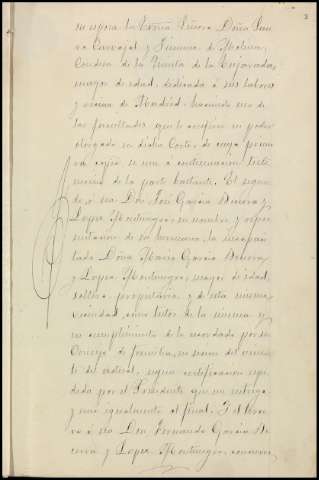 su esposa la Excma Señora Doña Lau
ra Carvajal y Jimenez de Molina,
Condesa de la Quinta de la Enjarada,
mayor de edad, dedicada á sus labores
y vecina de Madrid, haciendo uso de
las facultades que le confiere un poder
otorgado en dicha Corte, de cuya prime
ra copia se une á continuacion testi
monio de la parte bastante. El segun
do ó sea Don José García Becerra y
Lopez Montenegro, en nombre y repre
sentacion de su hermana, la incapaci
tada Doña María García Becerra
y Lopez Montenegro, mayor de edad,
soltera, propietaria y de esta misma
vecindad, como tutor de la misma y
en cumplimiento de lo acordado por el
Consejo de familia, en sesion del
de actual, segun certificacion espe
dida por el Presidente que me entrega
y uno igualmente al final. Y el terce
ro ó sea Don Fernando García Be
cerra y Lopez Montenegro,